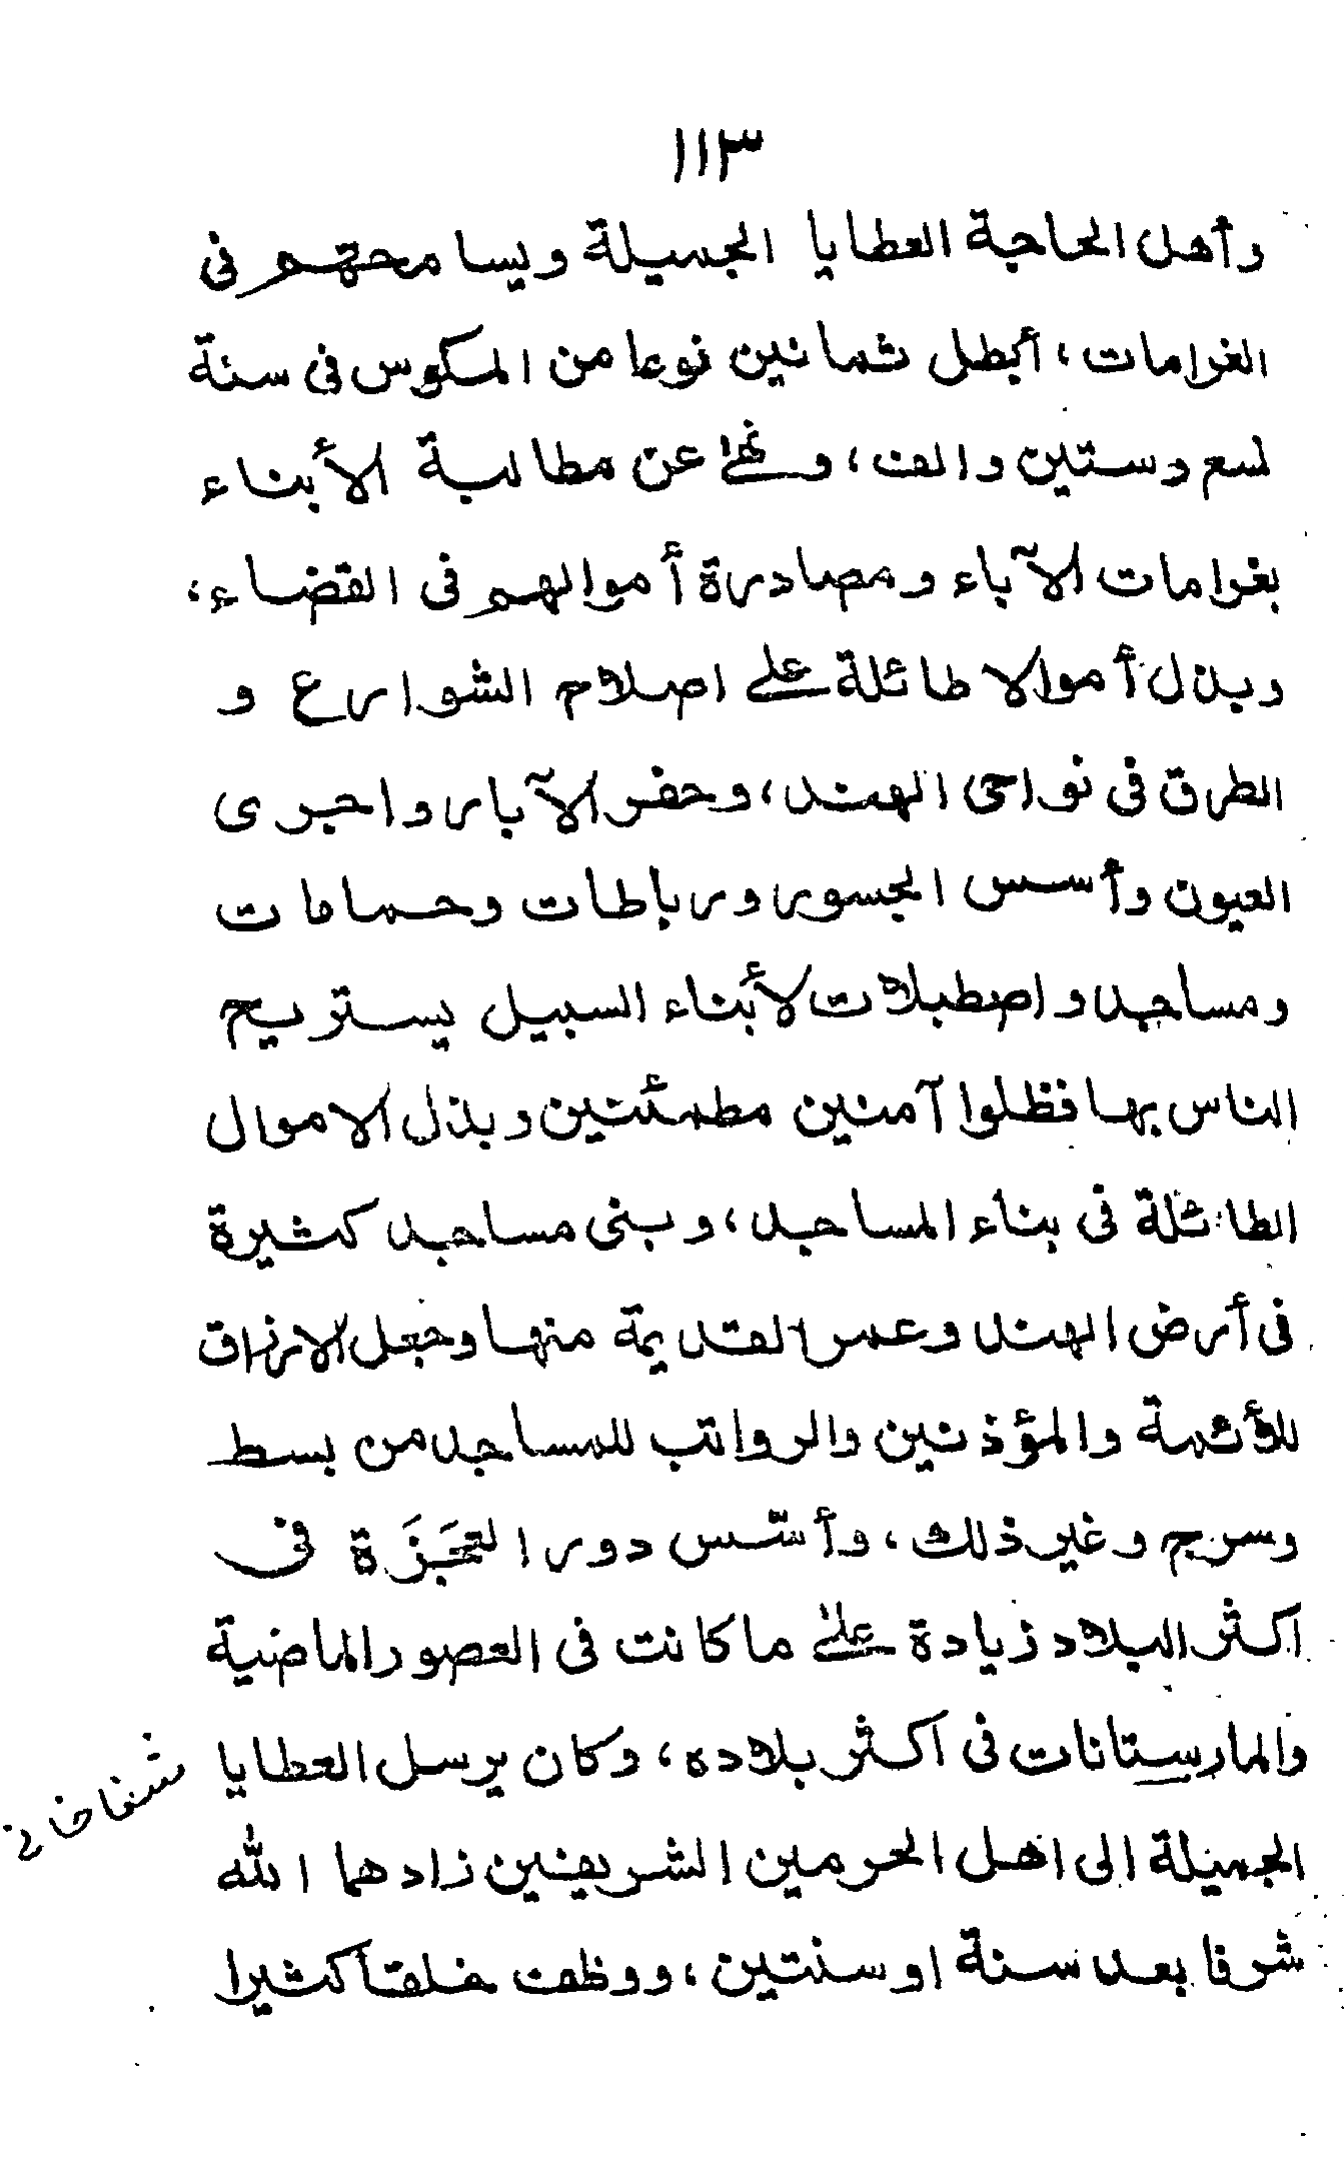 ١١٣
وأهل الحاجة العطايا الجسيلة ويسامحتهم فى
الغرامات، أبطل ثمانين نوعا من المكوس فى سنة
تسع وستين والف، ونهىٰ عن مطالبة الأبناء
بغرامات الآباء ومصادرة أموالهم فى القضاء،
وبذل أموالا طائلة على اصلاح الشوارع و
الطرق فى نواحى الهند، وحفر الآبار واجرى
العيون وأسس الجسور ورباطات وحمامات
ومساجد واصطبلات لأبناء السبيل يستريح
الناس بها فظلوا آمنين مطمئنين وبذل الاموال
الطائلة فى بناء المساجد، وبنى مساجد كثيرة
فى أرض الهند وعمر القديمة منها وجعل الارزاق
للأئمة والمؤذنين والرواتب للمساجد من بسط
وسرج وغير ذلك، وأسّس دور العَجَزَة فى
اكثر البلاد زيادة علىٰ ما كانت فى العصور الماضية
والمارستانات فى اكثر بلاده، وكان يرسل العطايا
شفاخانے
الجسيلة الى اهل الحرمين الشريفين زادهما الله
شرفا بعد سنة او سنتين، ووظف خلقا كثيرا